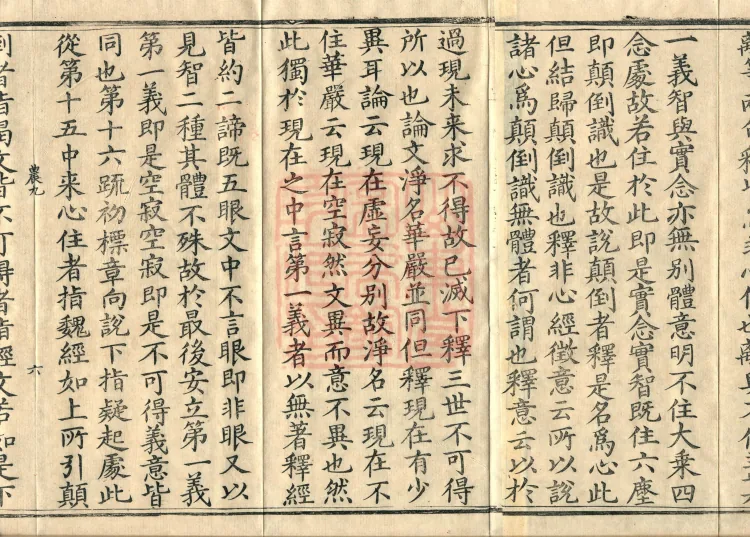 一義智與實念亦無別體意明不住大乗四
念處故若住於此即是實念實智既住六塵
即顛倒識也是故說顛倒者釋是名為心此
但結歸顛倒識也釋非心經徵意云所以說
諸心為顛倒識無體者何謂也釋意云以於
過現未来求不得故已滅下釋三世不可得
所以也論文淨名華嚴並同但釋現在有少
異耳論云現在虛妄分別故淨名云現在不
住華嚴云現在空寂然文異而意不異也然
此獨於現在之中言第一義者以無著釋經
皆約二諦既五眼文中不言眼即非眼又以
見智二種其體不殊故於最後安立第一義
第一義即是空寂空寂即是不可得義意皆
同也第十六疏初標章向說下指疑起處此
從第十五中来心住者指魏經如上所引顛
農九
六
倒者皆
文皆不可得者皆經文若如是下